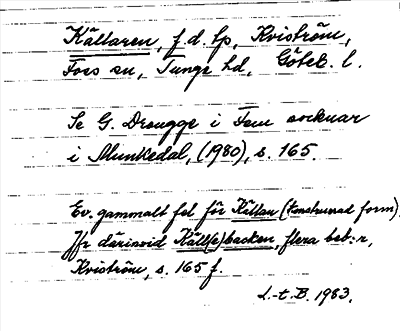 Källaren, f.d. lp, Kviström,
Foss sn, Tunge hd, Göteb. l.
Se G. Drougge i Fem socknar
i Munkedal, (1980), s. 165.
Ev. gammalt fel för Kättan (konstruerad form).
Jfr därinvid Käll(e)backen, flera beb:r,
Kviström, s. 165 f.
L.-t. B. 1983.